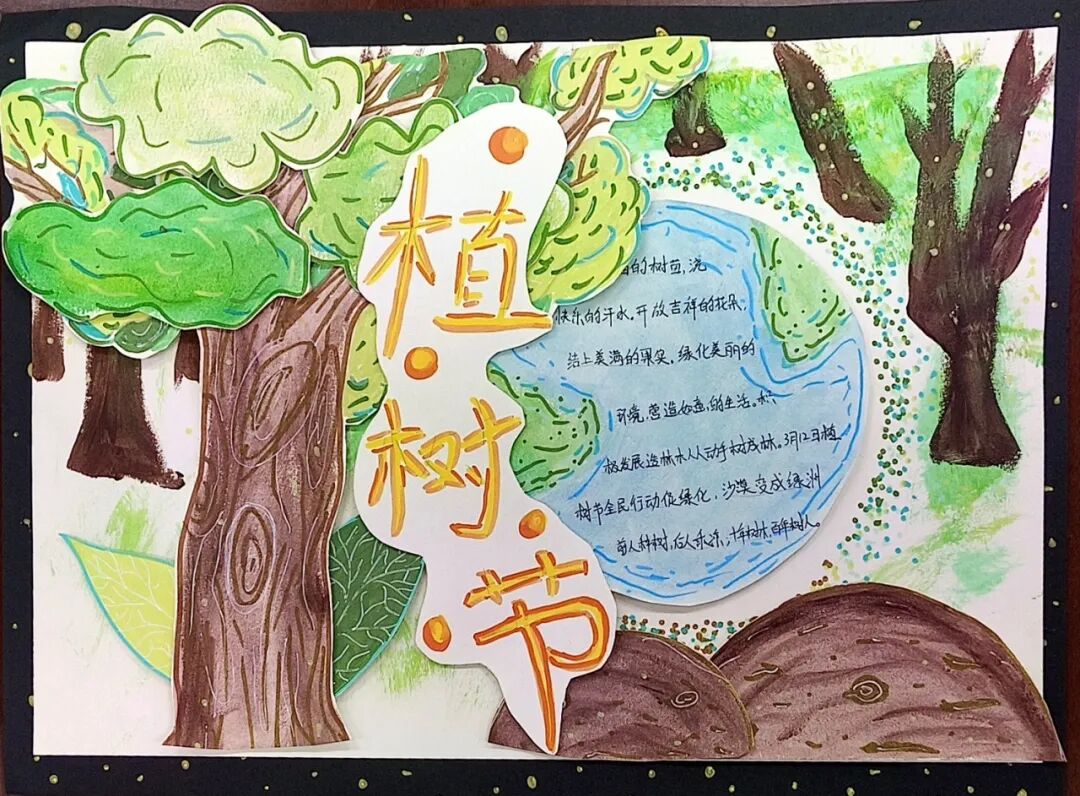 植树节
的树苗,浇
快乐的汗水。开放吉祥的花朵,
结上美满的果实、绿化美丽的
环境,营造如意的生活。积
极发展造林木人人动手树成林。3月12日植
树节全民行动促绿化,沙漠变成绿洲
前人种树,后人乐凉,十年树木,百年树人。